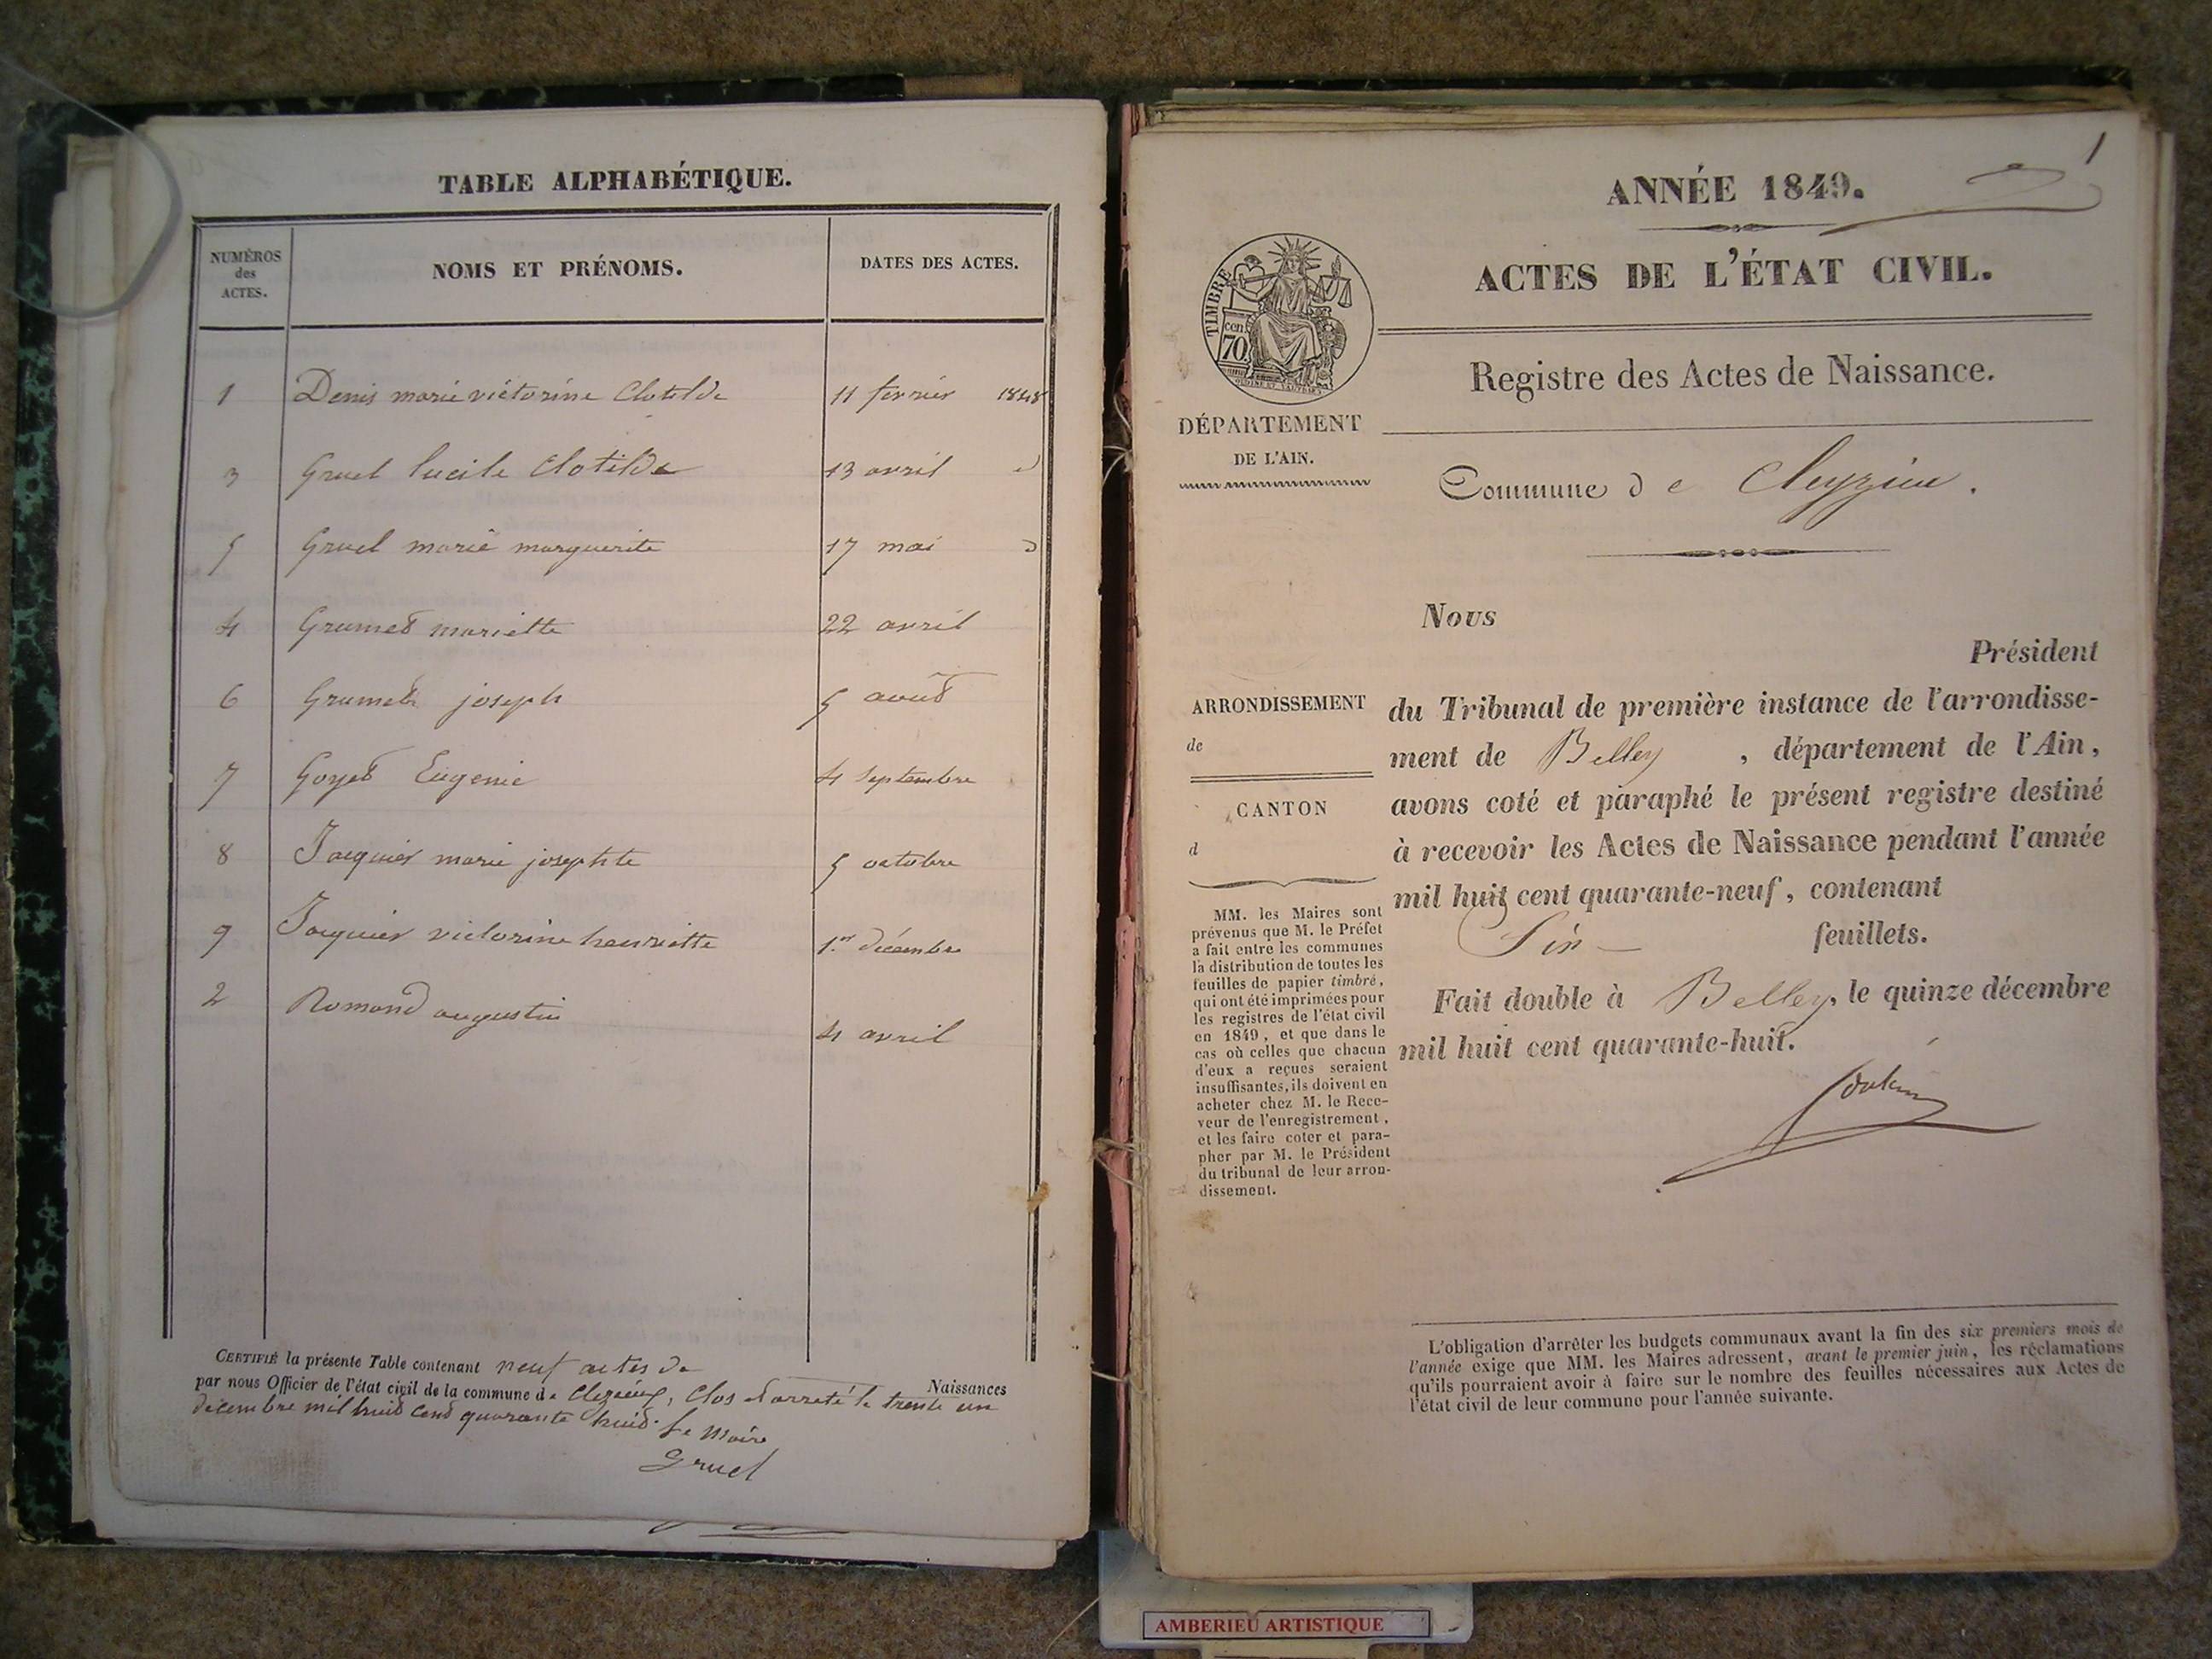 TABLE ALPHABÉTIQUE.
NUMÉROS des ACTES.
NOMS ET PRÉNOMS.
DATES DES ACTES.
1 Denis marie victorine Clotilde 11 fevrier 1848
3 Gruel lucile Clotilde 13 avril d
5 Gruel marie marguerite 17 mai d
4 Grumet mariette 22 avril
6 Grumet joseph 5 août
7 Goyet Eugenie 4 septembre
8 Jacquier marie josephte 5 octobre
9 Jacquier victorine henriette 1.er décembre
2 Romand augustin 4 avril
CERTIFIÉ la présente Table contenant neuf actes de
Naissances
par nous Officier de l'état civil de la commune de Cleyzieu, Clos et arreté le trente un
décembre mil huit cent quarante huit. Le Maire
Gruel
1
ANNÉE 1849.
ACTES DE L'ÉTAT CIVIL.
TIMBRE
70 cen
Registre des Actes de Naissance.
DÉPARTEMENT
DE L'AIN.
Commune de Cleyzieu.
Nous
Président
ARRONDISSEMENT
de
CANTON
d
du Tribunal de première instance de l'arrondisse-
ment de Belley, département de l'Ain,
avons coté et paraphé le présent registre destiné
à recevoir les Actes de Naissance pendant l'année
mil huit cent quarante-neuf, contenant
Six feuillets.
Fait double à Belley, le quinze décembre
mil huit cent quarante-huit.
MM. les Maires sont
prévenus que M. le Préfet
a fait entre les communes
la distribution de toutes les
feuilles de papier timbré,
qui ont été imprimées pour
les registres de l'état civil
en 1849, et que dans le
cas où celles que chacun
d'eux a reçues seraient
insuffisantes, ils doivent en
acheter chez M. le Rece-
veur de l'enregistrement,
et les faire coter et para-
pher par M. le Président
du tribunal de leur arron-
dissement.
L'obligation d'arrêter les budgets communaux avant la fin des six premiers mois de
l'année exige que MM. les Maires adressent, avant le premier juin, les réclamations
qu'ils pourraient avoir à faire sur le nombre des feuilles nécessaires aux Actes de
l'état civil de leur commune pour l'année suivante.
AMBERIEU ARTISTIQUE